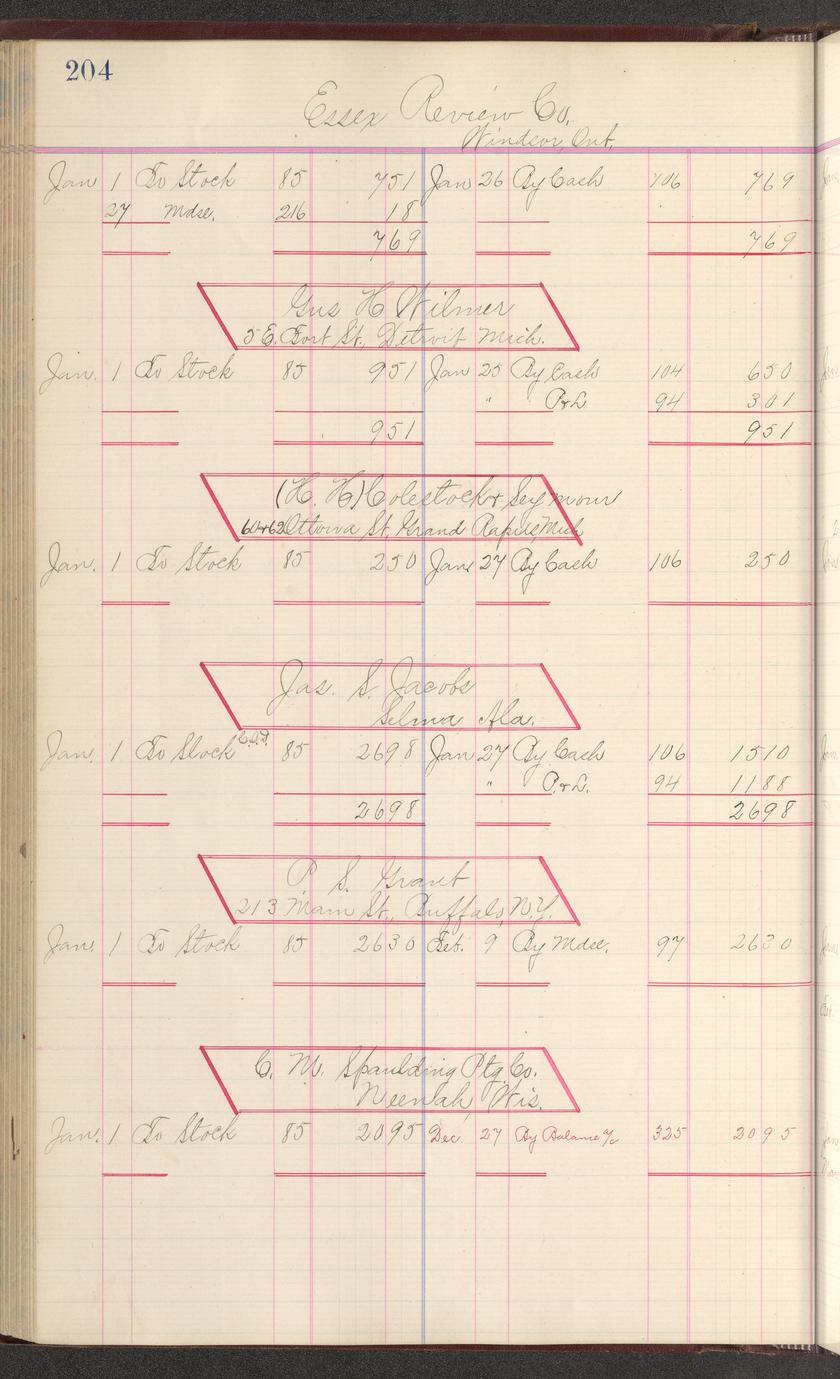 204
Essex Review Co.
Windsor, Ont.
Jan 1 To Stock 85 751 Jan 26 By Cash 106 769
27 Mdse. 216 18
769 769
Gus H Wilmer
5 E. Fort St., Detroit Mich.
Jan. 1 To Stock 85 951 Jan 25 By Cash 104 650
" P&L 94 301
951 951
(H. H) Colestock & Seymour
60 & 62 Ottowa St, Grand Rapids Mich
Jan. 1 To Stock 85 250 Jan 27 By Cash 106 250
Jas. S. Jacobs
Selma, Ala.
Jan. 1 To Stock 85 2698 Jan 27 By Cash 106 1510
" P.&L. 94 1188
2698 2698
P S. Grant
213 Main St., Buffalo, N.Y.
Jan. 1 To Stock 85 2630 Feb. 9 By Mdse. 97 2630
C. M. Spaulding Ptg. Co.
Neenah, Wis.
Jan. 1 To Stock 85 2095 Dec. 27 By Balance a/c 325 2095